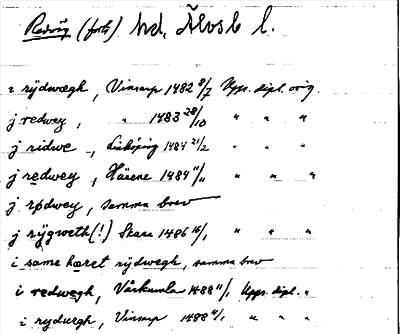 Redväg (forts.) hd, Älvsb l.
i rÿdwægh, Vinsarp 1482 8/7 Upps. dipl. orig.
j redwey, " 1483 28/10 " " "
j ridwe –, Linköping 1484 21/2 " " "
j redwey, Härene 1484 11/11 " " "
j rødwey, samma brev
j rÿgweth(!) Skara 1486 16/1 " " "
i same hæret rÿdwegh, samma brev
i redwegh, Vårkumla 1488 11/1 Upps. dipl. "
i rydwegh, Vinsarp 1488 4/1 " " "